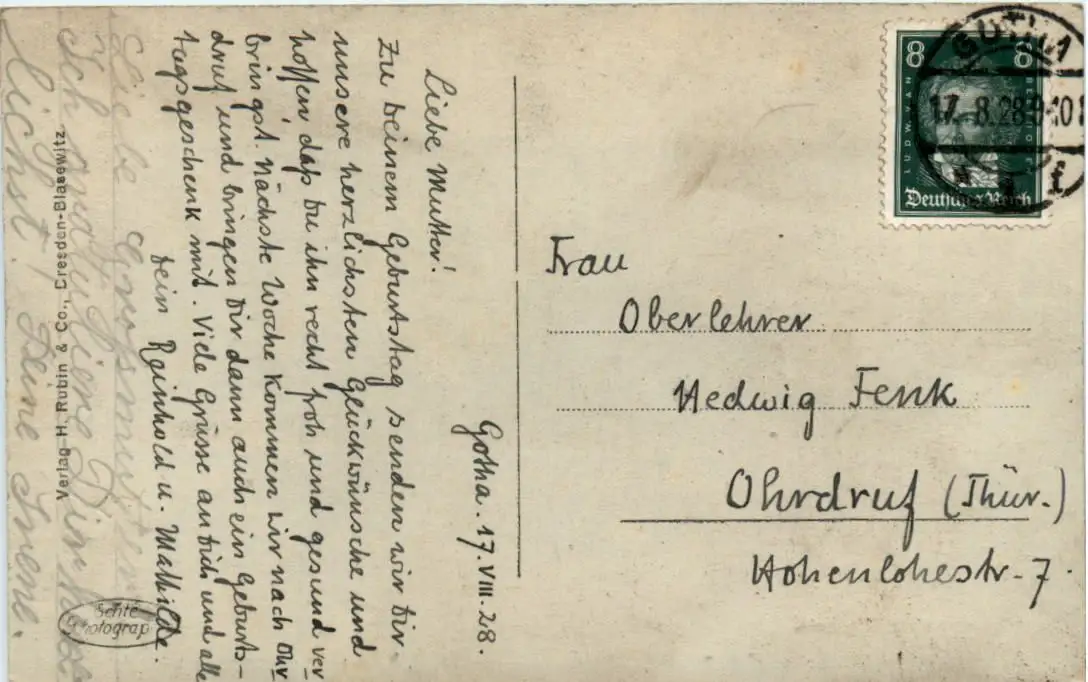 Gotha. 17. VIII. 28.
Liebe Mutter!
Zu deinem Geburtstag senden wir dir
unsere herzlichsten Glückwünsche und
hoffen, daß du ihn recht froh und gesund ver
bringst. Nächste Woche kommen wir nach Ohr
druf und bringen dir dann auch ein Geburts-
tagsgeschenk mit. Viele Grüsse an dich und alle
dein Reinhold u. Mathilde.
Liebe Grossmutter
Ich gratuliere Dir
Deine Irene.
Verlag H. Rubin & Co., Dresden-Blasewitz
Echte
Photograp
8 8
LUDWIG VAN
Deutsches Reich
GOTHA 1
17. 8. 28 9-10 V
Frau
Oberlehrer
Hedwig Fenk
Ohrdruf (Thür.)
Hohenlohestr. 7.